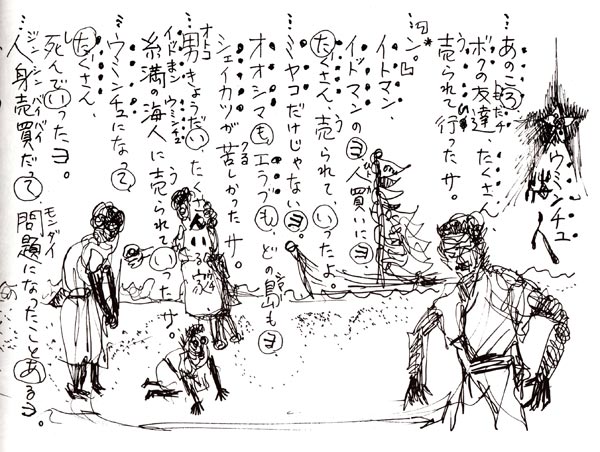 ウミンチュ
海人
…あのころ
ボクの友達、たくさん、
売られて行ったサ。
イトマン、
イトマンのヨ、人買いにヨ
たくさん、売られて、いったよ。
…ミヤコだけじゃないヨ。
オオシマも、エラブも、どの島もヨ、
シェイカツが苦しかったサ。
…男きょうだい、たくさん
糸満の海人に売られていったサ。
…ウミンチュになって、
たくさん、
死んでいったヨ。
…人身売買だって、問題になったことあるヨ。